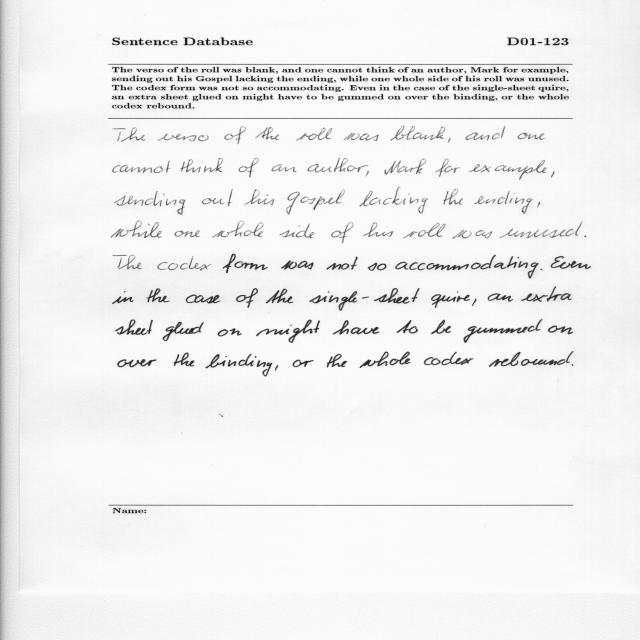 Sentence Database D01-123
The verso of the roll was blank, and one cannot think of an author, Mark for example,
sending out his Gospel lacking the ending, while one whole side of his roll was unused.
The codex form was not so accommodating. Even in the case of the single-sheet quire,
an extra sheet glued on might have to be gummed on over the binding, or the whole
codex rebound.
The verso of the roll was blank, and one
cannot think of an author, Mark for example,
sending out his Gospel lacking the ending,
while one whole side of his roll was unused.
The codex form was not so accommodating. Even
in the case of the single-sheet quire, an extra
sheet glued on might have to be gummed on
over the binding, or the whole codex rebound.
Name: